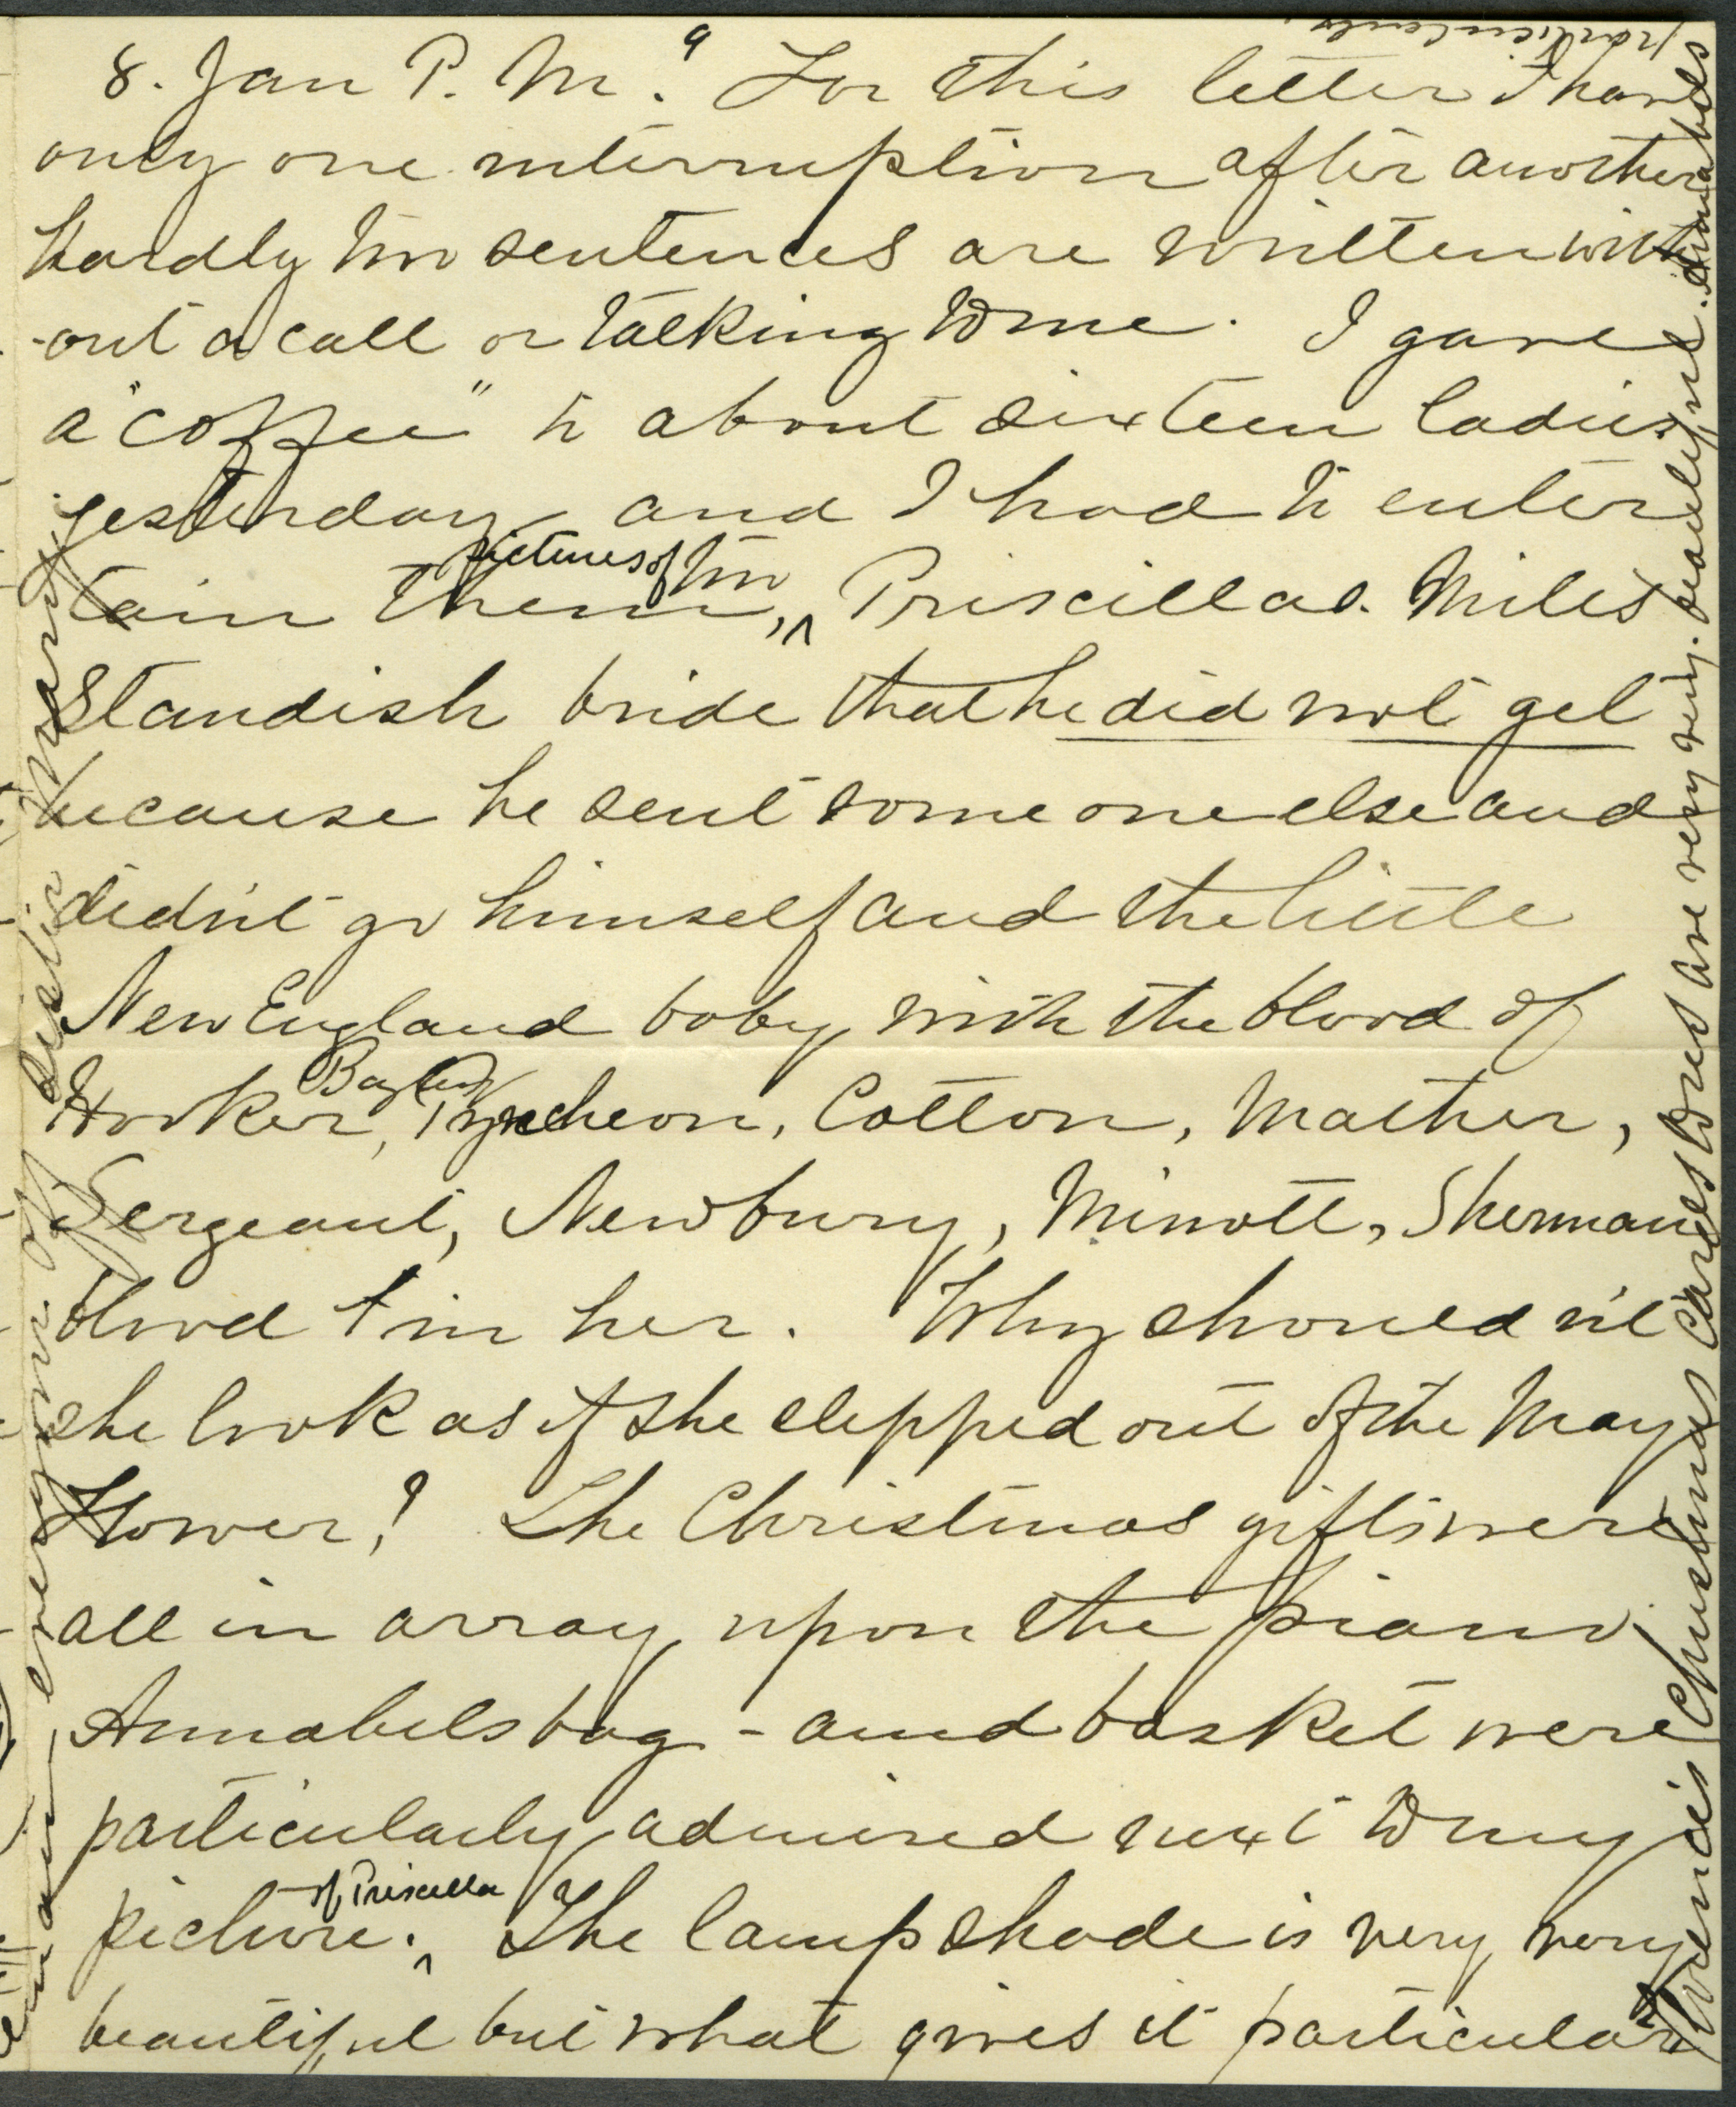 8. Jan P. M. 9 For this letter I have
only one interruption after another
hardly two sentences are written with
-out a call or talking to me. I gave
a "coffee" to about sixteen ladies
yesterday and I had to enter
tain them, ^ pictures of two Priscillas. Miles
Standish bride that he did not get
because he sent some one else and
didn't go himself and the little
New England baby with the blood of
Hooker, Bayley Pyncheon, Cotton, Mather,
Sergeant, Newbury, Minott, Sherman
blood in her. Why should n't
she look as if she slipped out of the May
Flower! The Christmas gifts were
all in array upon the piano.
Annabels bag - and basket were
particularly admired next to my
picture. ^ of Priscilla The lamp shade is very very
beautiful but what gives it particular
Christmas Cards too are very very beautiful. Annabels
particulars.
everyone of